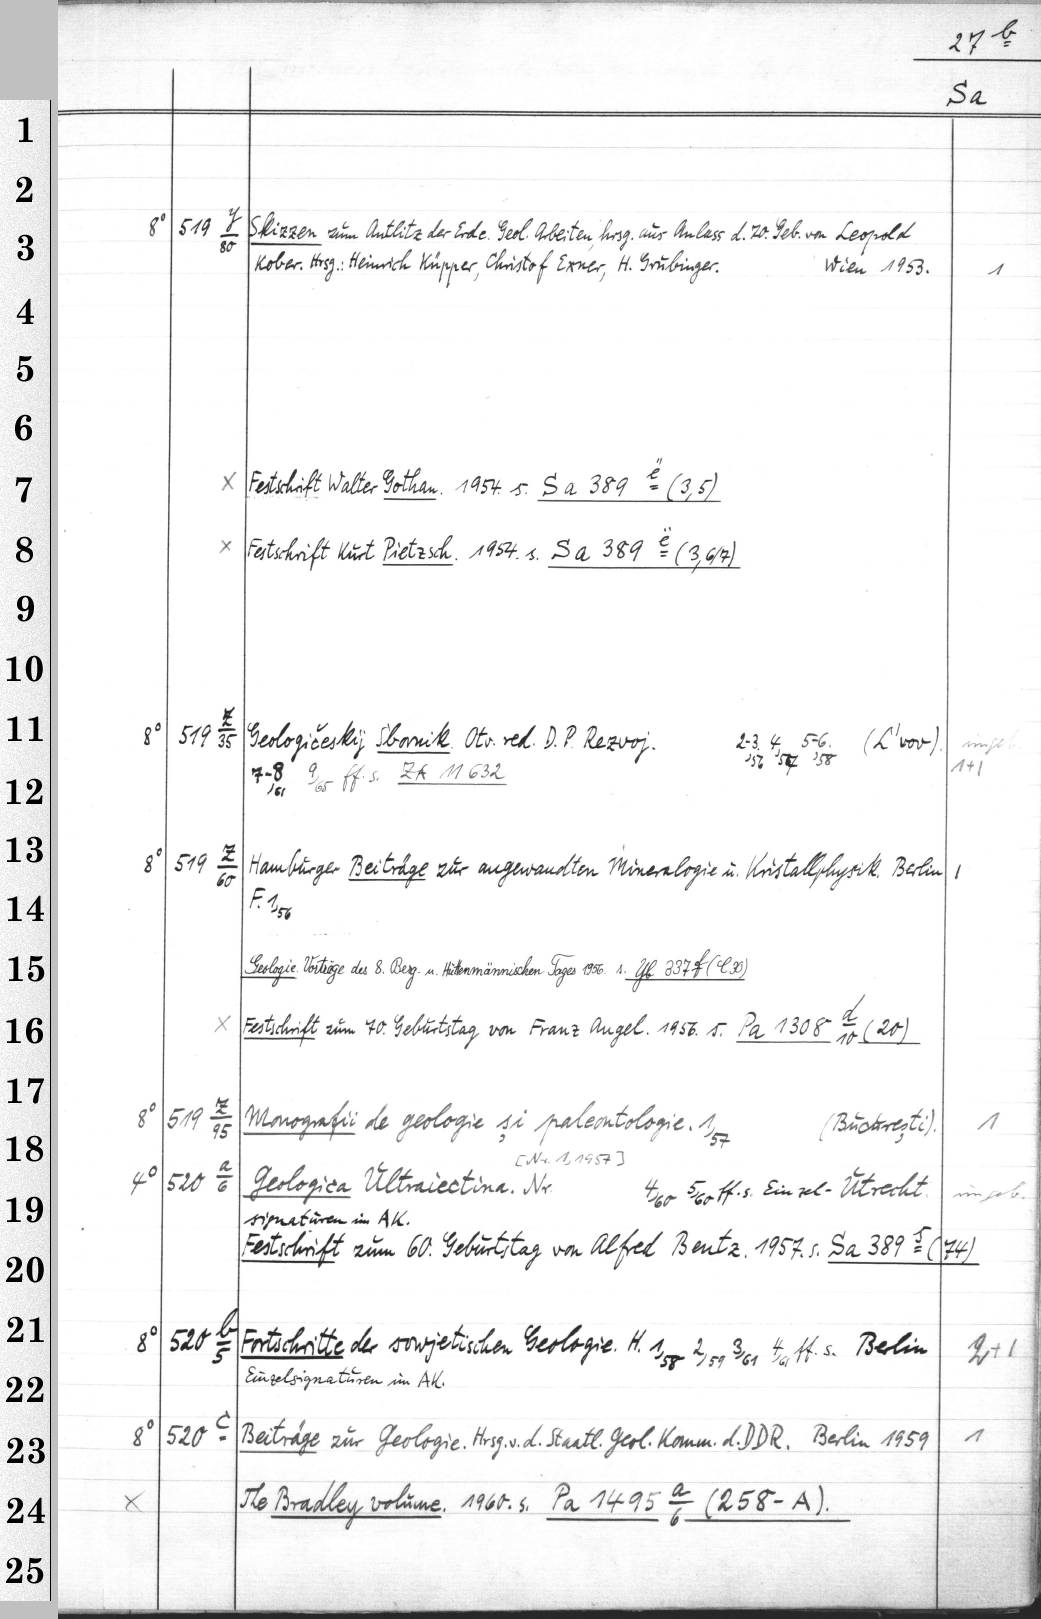 27 b
Sa
1
2
8° 519 y/80 Skizzen zum Antlitz der Erde. Geol. Arbeiten, hrsg. aus Anlass d. 70. Geb. von Leopold
3
Kober. Hrsg.: Heinrich Küpper, Christof Exner, H. Grubinger. Wien 1953. 1
4
5
6
7 × Festschrift Walter Gothan. 1954. s. Sa 389 ë (3,5)
8 × Festschrift Kurt Pietzsch. 1954. s. Sa 389 ë (3,6/7)
9
10
11 8° 519 z/35 Geologičeskij Sbornik. Otv. red. D. P. Rezvoj. 2-3,56 4,57 5-6,58 (L'vov).
12 7-8,61 9/65 ff. s. ZA 11632 1+1
13 8° 519 z/60 Hamburger Beiträge zur angewandten Mineralogie u. Kristallphysik. Berlin 1
14 F. 1,56
15 Geologie. Vorträge des 8. Berg- u. Hüttenmännischen Tages 1956. s.
16 × Festschrift zum 70. Geburtstag von Franz Angel. 1956. s. Pa 1308 d/10 (20)
17
8° 519 z/95 Monografii de geologie și paleontologie. 1,57 (București). 1
18 [Nr. 1, 1957]
4° 520 a/6 Geologica Ultraiectina. Nr. 4/60 5/60 ff. s. Einzel- Utrecht. ungeb.
19 signaturen im AK.
20 Festschrift zum 60. Geburtstag von Alfred Bentz. 1957. s. Sa 389 (74)
21 8° 520 b/5 Fortschritte der sowjetischen Geologie. H. 1,58 2,59 3/61 4/61 ff. s. Berlin 2+1
22 Einzelsignaturen im AK.
23 8° 520 c Beiträge zur Geologie. Hrsg. v. d. Staatl. Geol. Komm. d. DDR. Berlin 1959 1
24 × The Bradley volume. 1960. s. Pa 1495 a/6 (258-A).
25